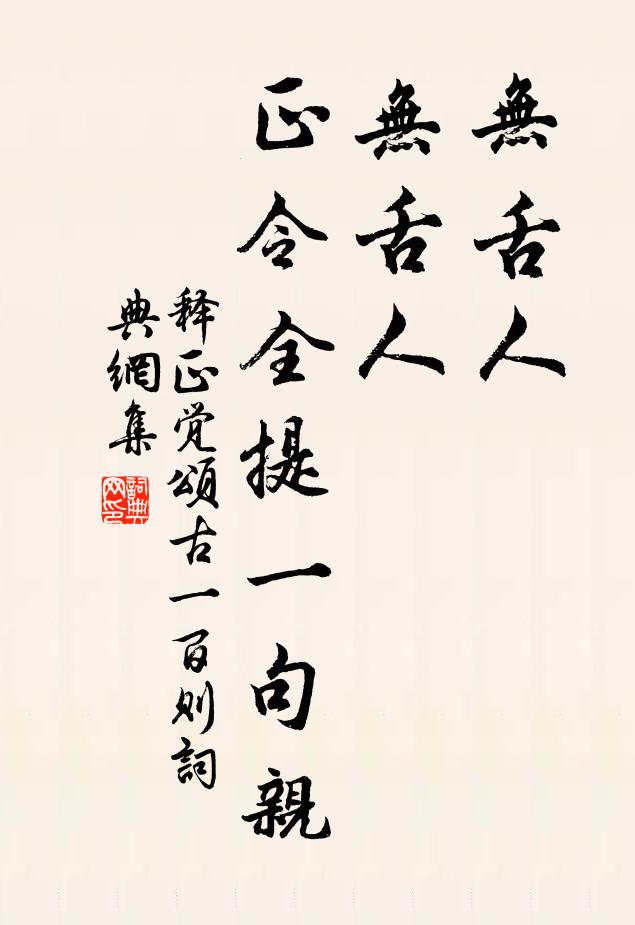 無舌人
無舌人
正令全提一句親
释正觉頌古一百则詞
典網集
詞典
网印